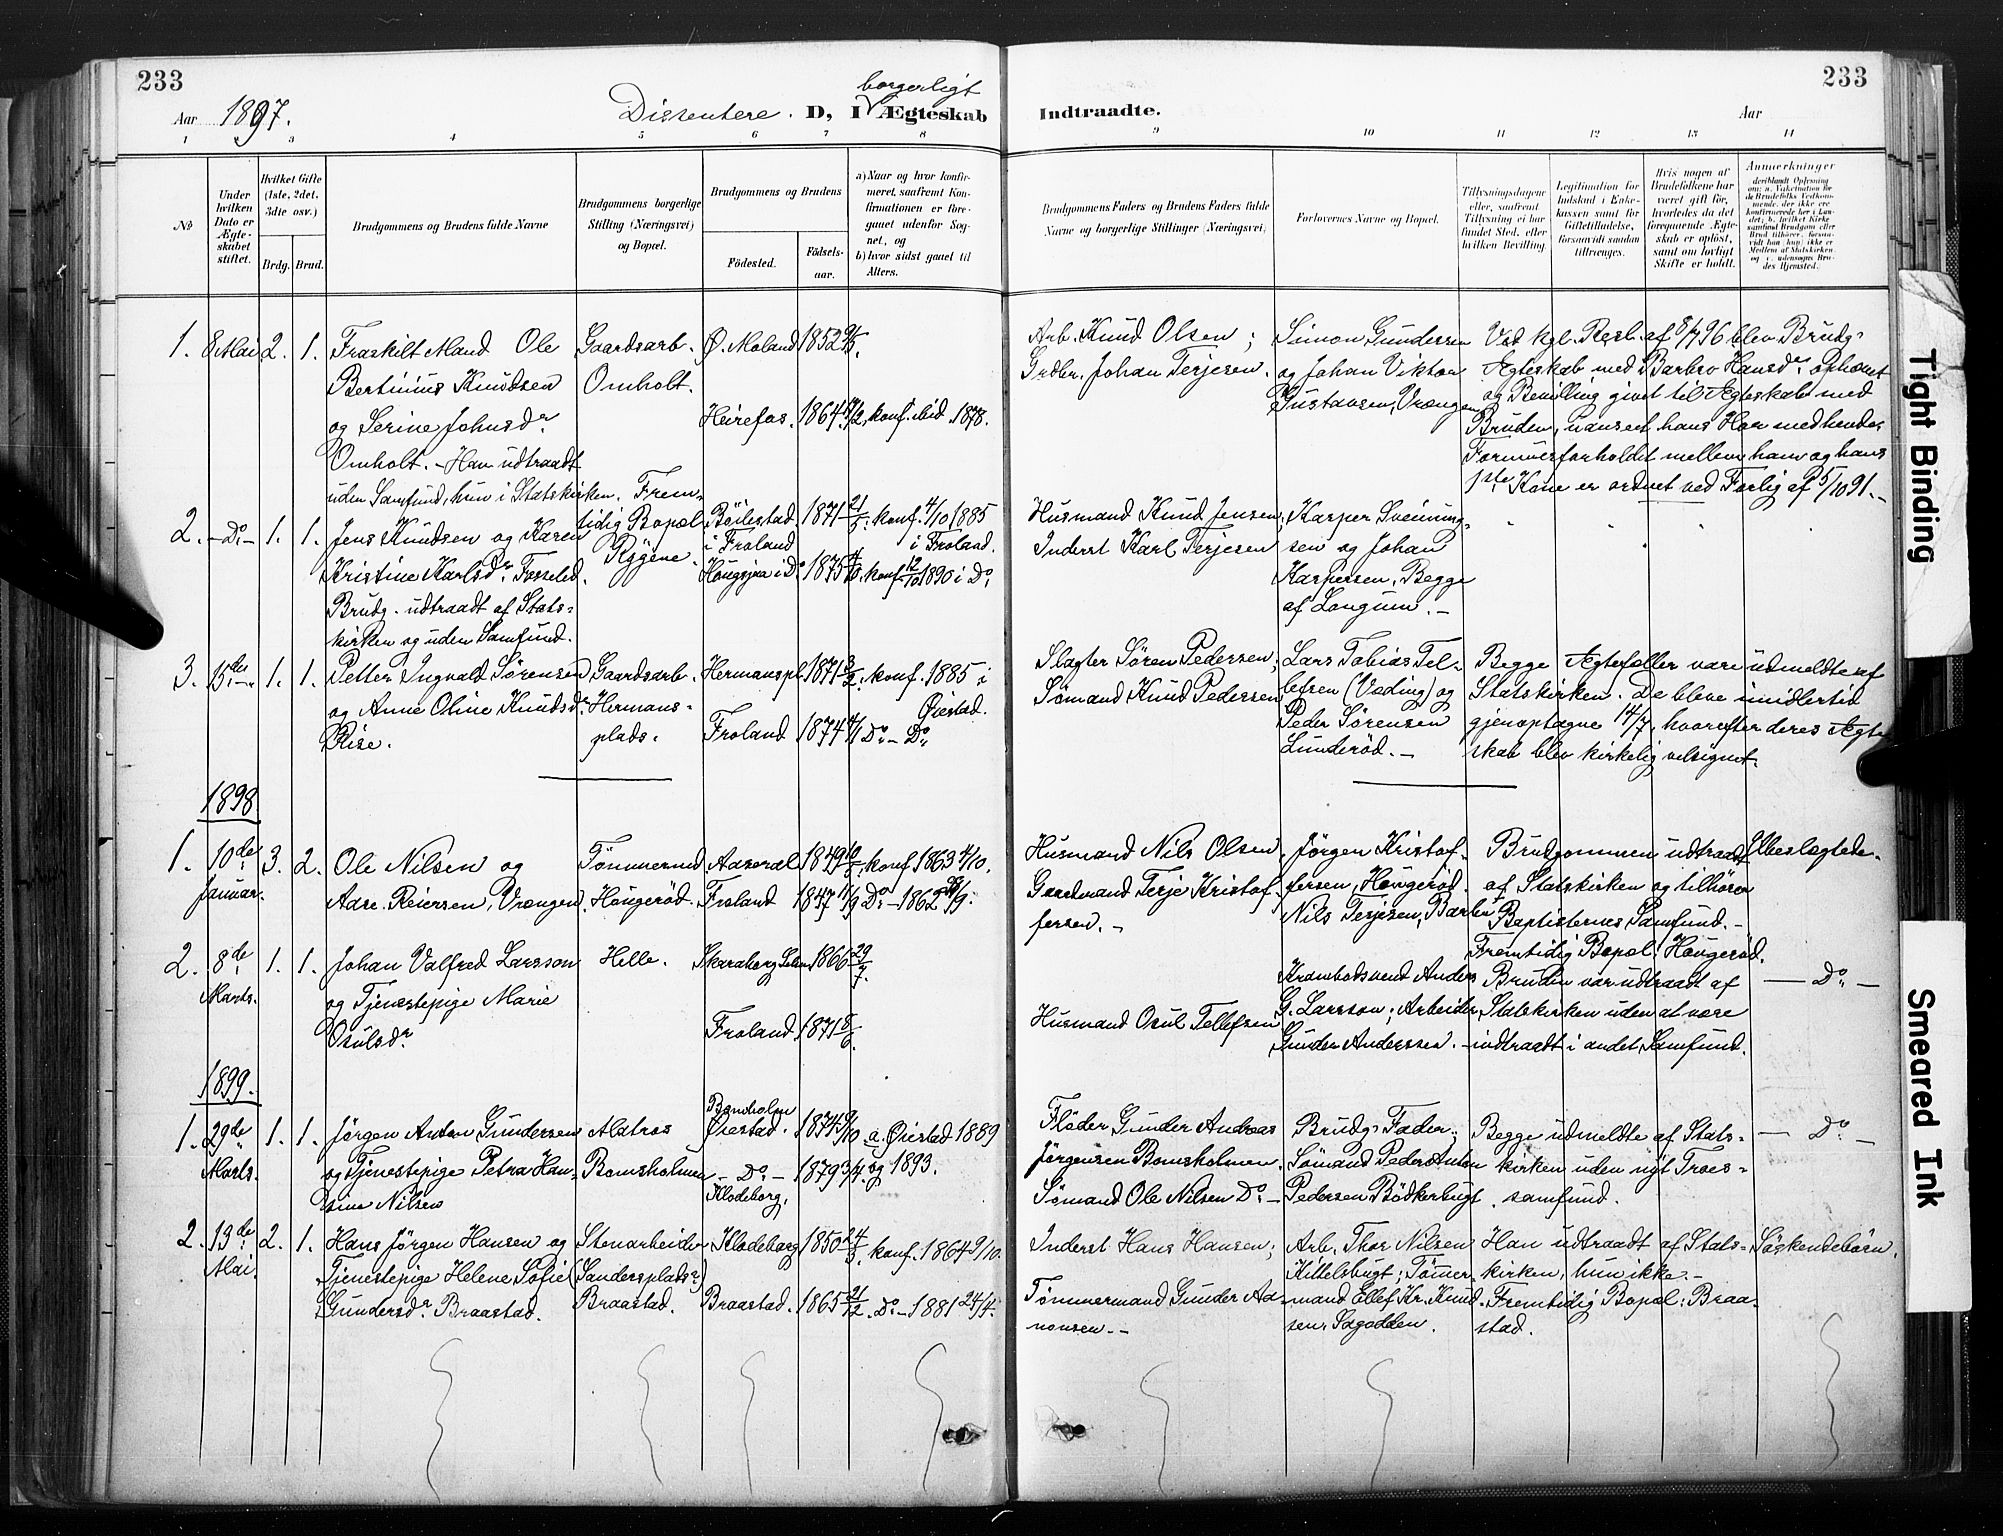 233
233
Aar 1897.
Dissentere. D, I borgerligt Ægteskab
Indtraadte.
Aar
1 3 4 5 6 7 8 9 10 11 12 13 14
No
Under hvilken Dato er Ægteskabet stiftet.
Hvilket Gifte (1ste, 2det, 3die osv.)
Brdg. Brud.
Brudgommens og Brudens fulde Navne
Brudgommens borgerlige Stilling (Næringsvei) og Bopæl.
Brudgommens og Brudens
Födested.
Födselsaar.
a) Naar og hvor konfirmeret, saafremt Konfirmationen er foregaaet udenfor Sognet, og
b) hvor sidst gaaet til Alters.
Brudgommens Faders og Brudens Faders fulde Navne og borgerlige Stillinger (Næringsvei)
Forlovernes Navne og Bopæl.
Tillysningsdagene eller, saafremt Tillysning ei har fundet Sted, efter hvilken Bevilling.
Legitimation for Indskud i Enkekassen samt for Giftetilladelse, forsaavidt saadan tiltrænges.
Hvis nogen af Brudefolkene har været gift før, hvorledes da det foregaaende Ægteskab er opløst, samt om lovligt Skifte er holdt.
Anmerkninger
1. 8 Mai 2. 1. Fraskilt Mand Ole
Bertinius Knudsen
og Serine Johnsdr
Omholt. – Han udtraadt
uden Samfund, hun i Statskirken.
Gaardsarb.
Omholt.
Ø. Moland 1852
Heirefos. 1864 konf. ibid 1878.
Arb. Knud Olsen;
Grdbr. Johan Terjesen.
Simon Gundersen
og Johan Viktor
Gustavsen, Vrængen
Ved kgl. Resl. af 8/7 96 blev Brudg.
Ægteskab med Barbro Hansdr ophævet
og Bevilling givet til Ægteskab med
Bruden, uanset hans
Formuesforholdet mellem ham og hans
1ste Kone er ordnet ved Forlig af 5/10 91. –
2. – Do – 1. 1. Jens Knudsen og Karen
Kristine Karlsdr
Brudg. udtraadt af Stats-
kirken og uden Samfund.
Frem-
tidig Bopæl
Rygene.
Böilestad
i Froland 1871 konf. 4/10 1885
i Froland.
i Do 1875 konf. 12/10 1890 i Do
Husmand Knud Jensen;
Inderst Karl Terjesen
Kasper Sveinung-
sen og Johan
Kaspersen, Begge
af Langum. –
3. 15de 1. 1. Petter Ingvald Sørensen
og Anne Oline Knudsdr
Rise.
Gaardsarb.
Hermans-
plads.
Hermanspl. 1871 3/2. konf. 1885 i
Øiestad.
Froland 1874 Do – Do
Slagter Sören Pedersen;
Sømand Knud Pedersen
Lars Tobias Tel-
lefsen (Væding) og
Peder Sørensen
Lunderød. –
Begge Ægtefæller vare udmeldte af
Statskirken. De bleve imidlertid
gjenoptagne 14/7, hvorefter deres Ægte
skab blev kirkelig velsignet.
1898
1. 10de
Januar. 3. 2. Ole Nilsen og
Reiersen, Vrængen.
Tømmermd
Höugeröd.
Aaseral 1849 konf. 1863 4/10.
Froland 1847 11/9 Do – 1862
Husmand Nils Olsen,
Gaardmand Terje Kristof-
fersen. –
Jørgen Kristof-
fersen, Höugeröd.
Nils Terjesen, Barbu
Brudgommen udtraadt
af Statskirken og tilhører
Baptisternes Samfund. –
Fremtidig Bopæl: Höugeröd.
Ubeslægtede.
2. 8de
Marts. 1. 1. Johan Valfred Larsson
og Tjenestepige Marie
Osulsdr
Helle.
Skaraborg Læn 1866 29/7.
Froland 1871
Husmand Osul Tellefsen
Krambodsvend Anders
G. Larsson; Arbeider
Gunder Anderssen. –
Bruden var udtraadt af
Statskirken uden at være
indtraadt i andet Samfund.
– Do –
1899.
1. 29de
Marts. 1. 1. Jørgen Anton Gundersen
og Tjenestepige Petra Han-
sine Nilsen
Matros
Bomsholmen
Bomholm
Øiestad. 1874 9/10 a. Øiestad 1889
– Do –
Klodeborg, 1879 3/4. og 1893.
Fløder Gunder Andreas
Jørgensen Bomsholmen.
Sømand Ole Nilsen Do –
Brudg. Fader;
Sömand Peder Anton
Pedersen Bödkerbugt.
Begge udmeldte af Stats-
kirken uden nyt Troes-
samfund.
– Do –
2. 13de
Mai. 2. 1. Hans Jørgen Hansen og
Tjenestepige Helene Sofie
Gundersdr Braastad.
Stenarbeider
(Sandersplads)
Braastad.
Klodeborg 1850 24/3. konf. 1864 9/10.
Braastad. 1865 21/12. Do – 1881 24/4.
Inderst Hans Hansen;
Tømmermand Gunder Aa-
nonsen. –
Arb. Thor Nilsen
Kittelsbugt; Tömer-
mand Ellef Kr. Knud-
sen. Sagodden.
Han udtraadt af Stats-
kirken, hun ikke. –
Fremtidig Bopæl: Braa-
stad.
Søskendebørn.
Tight Binding
Smeared Ink